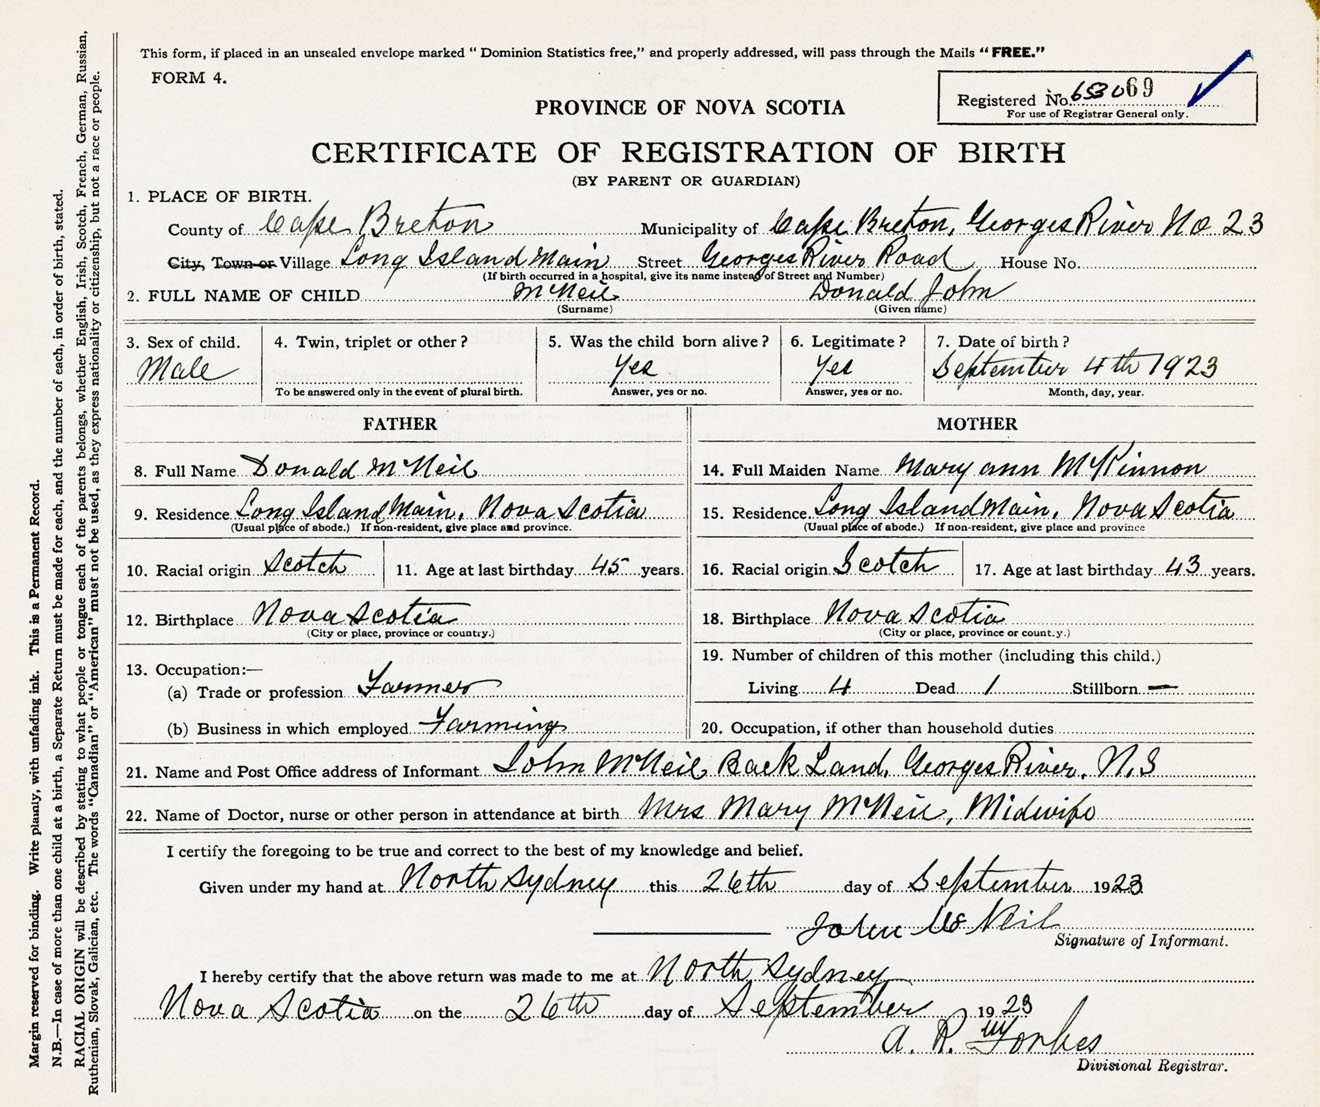 This form, if placed in an unsealed envelope marked "Dominion Statistics free," and properly addressed, will pass through the Mails "FREE."
FORM 4.
Registered No. 653069
For use of Registrar General only.
PROVINCE OF NOVA SCOTIA
CERTIFICATE OF REGISTRATION OF BIRTH
(BY PARENT OR GUARDIAN)
1. PLACE OF BIRTH.
County of Cape Breton Municipality of Cape Breton, Georges River No 23
City, Town or Village Long Island Main Street Georges River Road House No.
(If birth occurred in a hospital, give its name instead of Street and Number)
2. FULL NAME OF CHILD McNeil Donald John
(Surname) (Given name)
3. Sex of child. 4. Twin, triplet or other? 5. Was the child born alive? 6. Legitimate? 7. Date of birth?
Male Yes Yes September 4th 1923
To be answered only in the event of plural birth. Answer, yes or no. Answer, yes or no. Month, day, year.
FATHER MOTHER
8. Full Name Donald McNeil 14. Full Maiden Name Mary ann McKinnon
9. Residence Long Island Main, Nova Scotia 15. Residence Long Island Main, Nova Scotia
(Usual place of abode.) If non-resident, give place and province. (Usual place of abode.) If non-resident, give place and province
10. Racial origin Scotch 11. Age at last birthday 45 years. 16. Racial origin Scotch 17. Age at last birthday 43 years.
12. Birthplace Nova Scotia 18. Birthplace Nova Scotia
(City or place, province or country.) (City or place, province or country.)
13. Occupation:— 19. Number of children of this mother (including this child.)
(a) Trade or profession Farmer Living 4 Dead 1 Stillborn —
(b) Business in which employed Farming 20. Occupation, if other than household duties
21. Name and Post Office address of Informant John McNeil Back Land, Georges River, N.S
22. Name of Doctor, nurse or other person in attendance at birth Mrs Mary McNeil, Midwife
I certify the foregoing to be true and correct to the best of my knowledge and belief.
Given under my hand at North Sydney this 26th day of September 1923
John McNeil
Signature of Informant.
I hereby certify that the above return was made to me at North Sydney
Nova Scotia on the 26th day of September 1923
A. R. Forbes
Divisional Registrar.
Margin reserved for binding. Write plainly, with unfading ink. This is a Permanent Record.
N.B.—In case of more than one child at a birth, a Separate Return must be made for each, and the number of each, in order of birth, stated.
RACIAL ORIGIN will be described by stating to what people or tongue each of the parents belongs, whether English, Irish, Scotch, French, German, Russian,
Ruthenian, Slovak, Galician, etc. The words "Canadian" or "American" must not be used, as they express nationality or citizenship, but not a race or people.